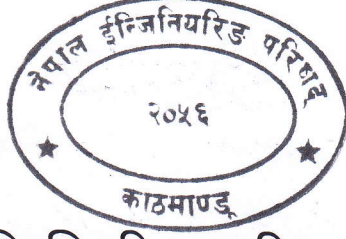 नेपाल ईन्जिनियरिङ परिषद्
२०५६
काठमाण्डू